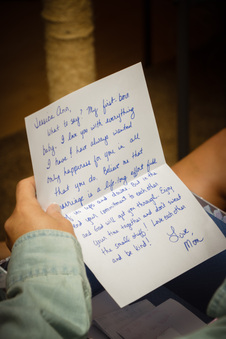 Jessica Ann,
What to say, My first born
baby. I love you with everything
I have & have always wanted
only happiness for you in all
that you do. Believe in that
marriage is a life long effort full
of ups and downs. But in the
end your commitment to each other
and God will get you through. Enjoy
your time together and don't sweat
the small stuff! Love each other
and be kind!
Love,
Mom